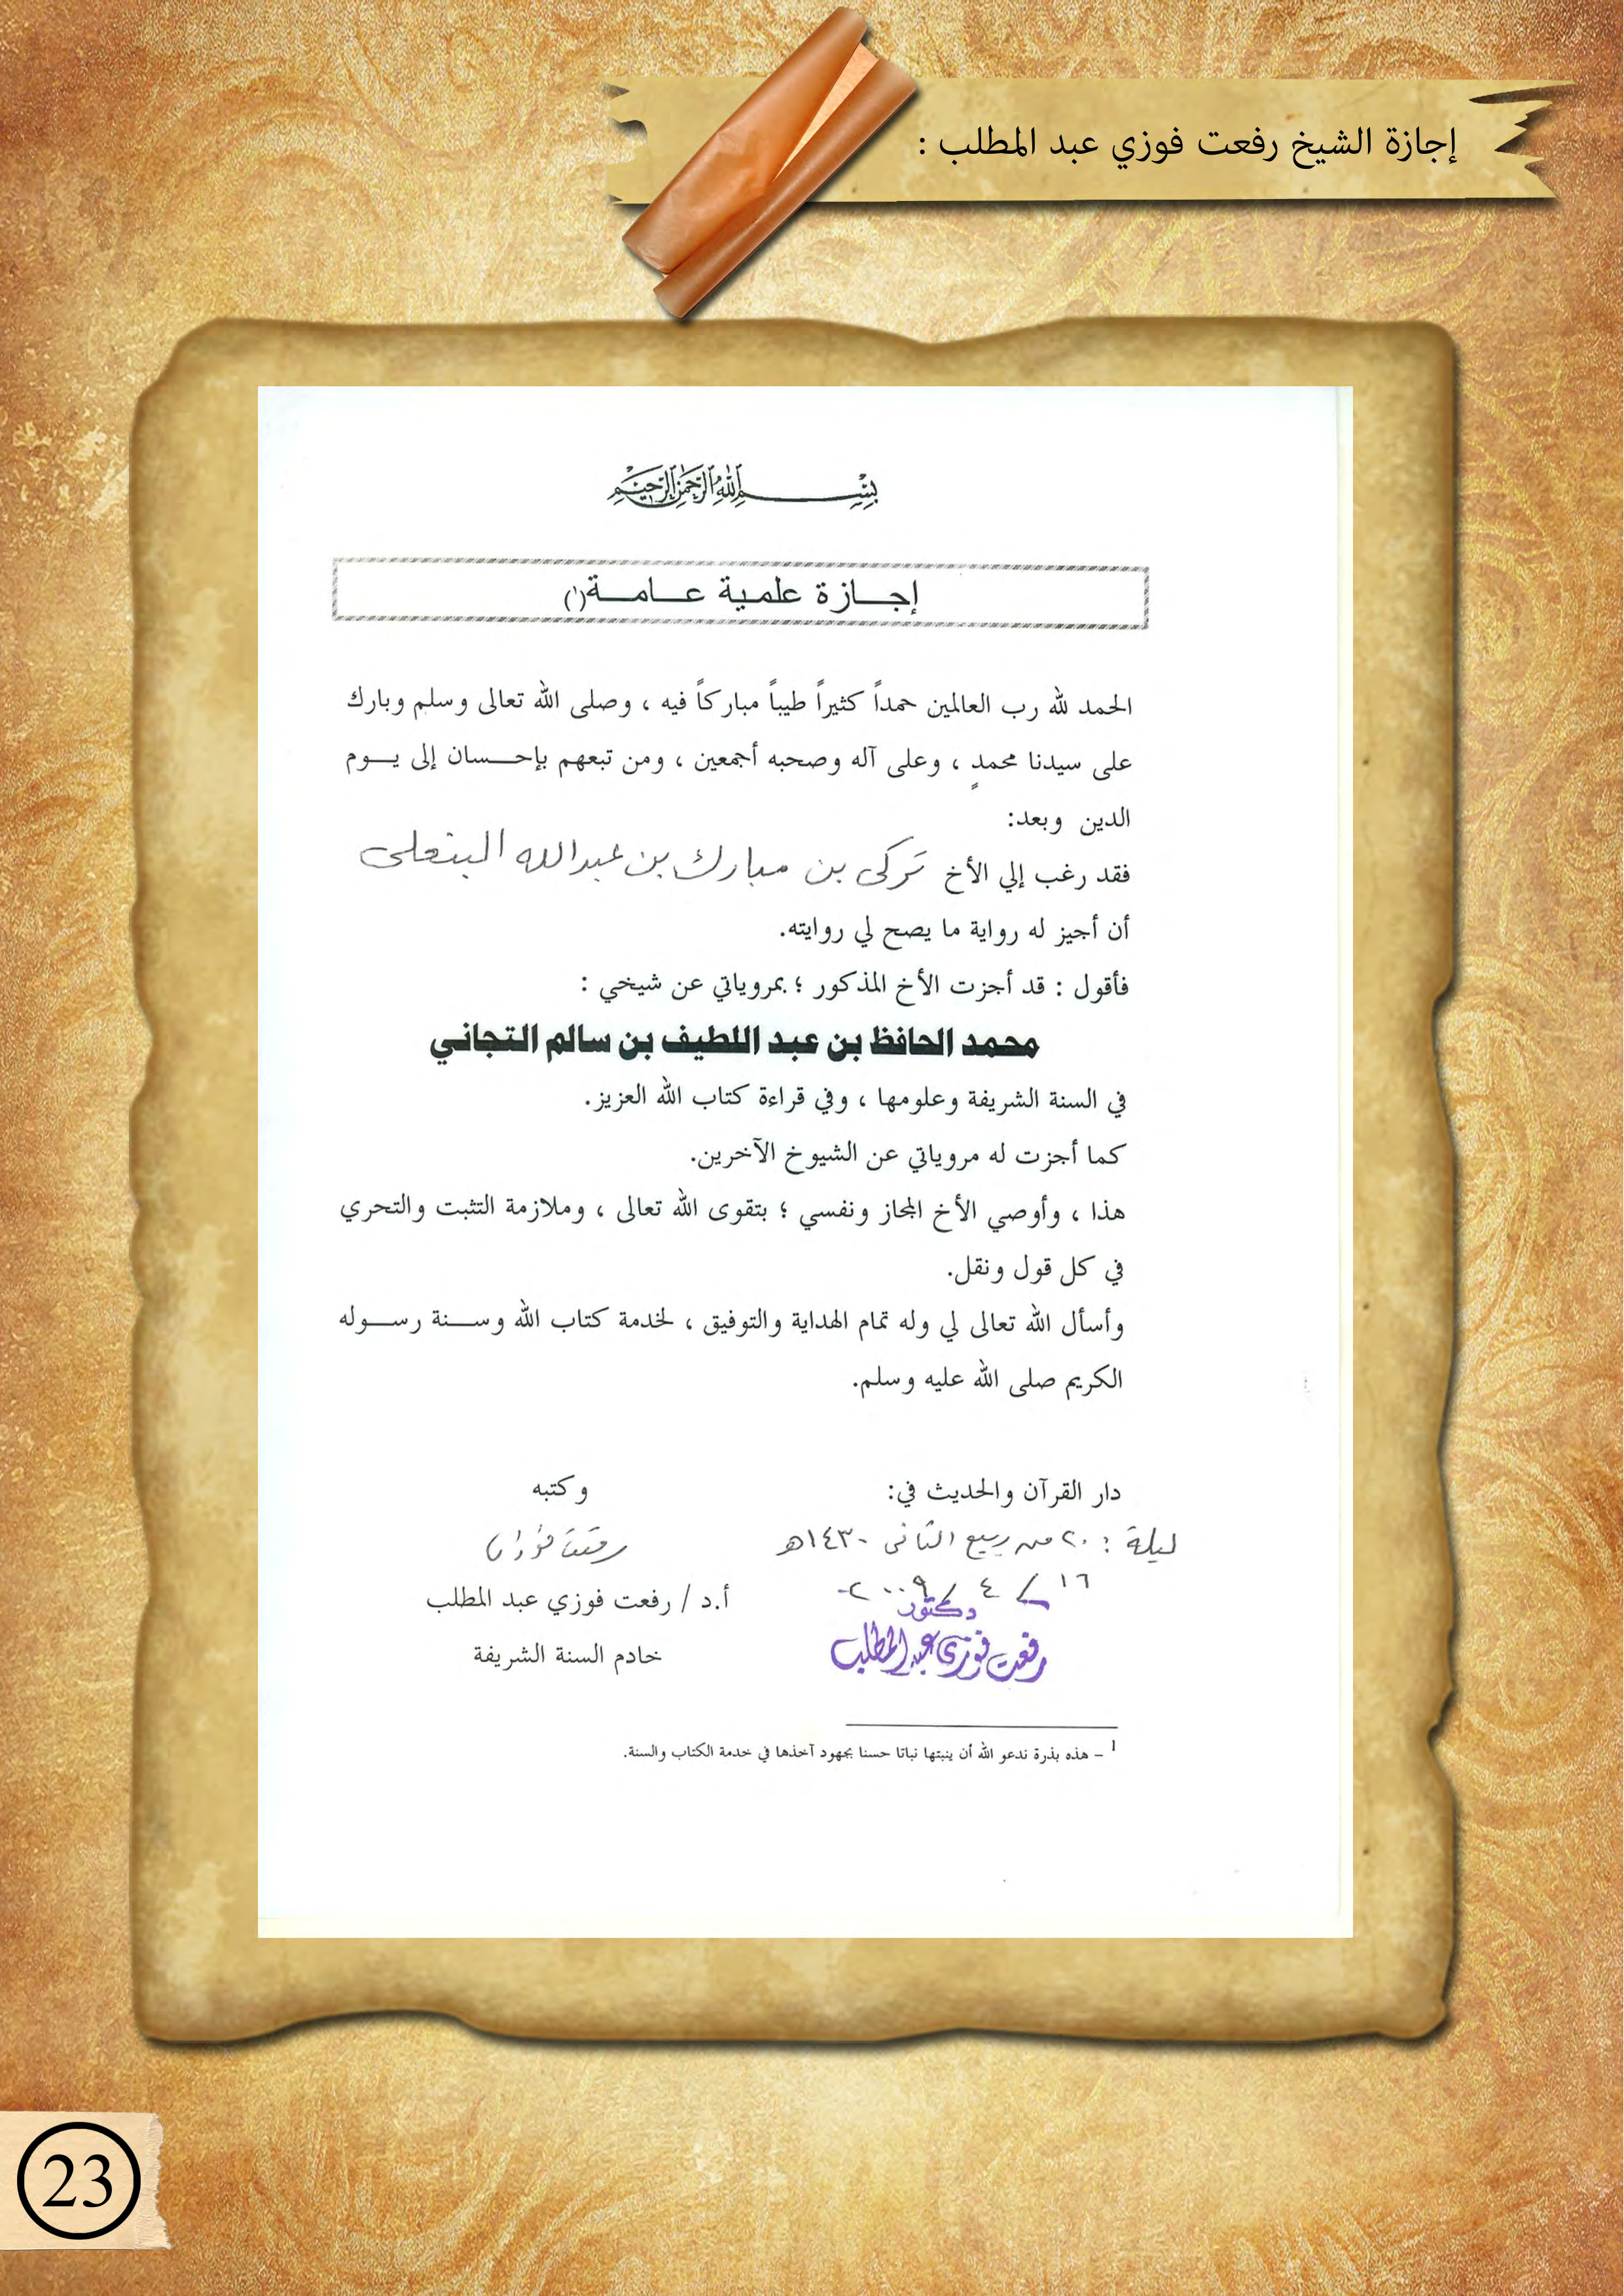 إجازة الشيخ رفعت فوزي عبد المطلب :
بسم الله الرحمن الرحيم
إجازة علمية عامة(١)
الحمد لله رب العالمين حمداً كثيراً طيباً مباركاً فيه ، وصلى الله تعالى وسلم وبارك
على سيدنا محمدٍ ، وعلى آله وصحبه أجمعين ، ومن تبعهم بإحسان إلى يوم
الدين وبعد:
فقد رغب إلي الأخ تركى بن مبارك بن عبدالله البنعلى
أن أجيز له رواية ما يصح لي روايته.
فأقول : قد أجزت الأخ المذكور ؛ بمروياتي عن شيخي :
محمد الحافظ بن عبد اللطيف بن سالم التجاني
في السنة الشريفة وعلومها ، وفي قراءة كتاب الله العزيز.
كما أجزت له مروياتي عن الشيوخ الآخرين.
هذا ، وأوصي الأخ المجاز ونفسي ؛ بتقوى الله تعالى ، وملازمة التثبت والتحري
في كل قول ونقل.
وأسأل الله تعالى لي وله تمام الهداية والتوفيق ، لخدمة كتاب الله وسنة رسوله
الكريم صلى الله عليه وسلم.
دار القرآن والحديث في:
ليلة : ٢٠ من ربيع الثانى ١٤٣٠هـ
١٦ / ٤ / ٢٠٠٩
دكتور
رفعت فوزى عبد المطلب
وكتبه
رفعت فوزى
أ.د / رفعت فوزي عبد المطلب
خادم السنة الشريفة
1 – هذه بذرة ندعو الله أن ينبتها نباتا حسنا بجهود آخذها في خدمة الكتاب والسنة.
23